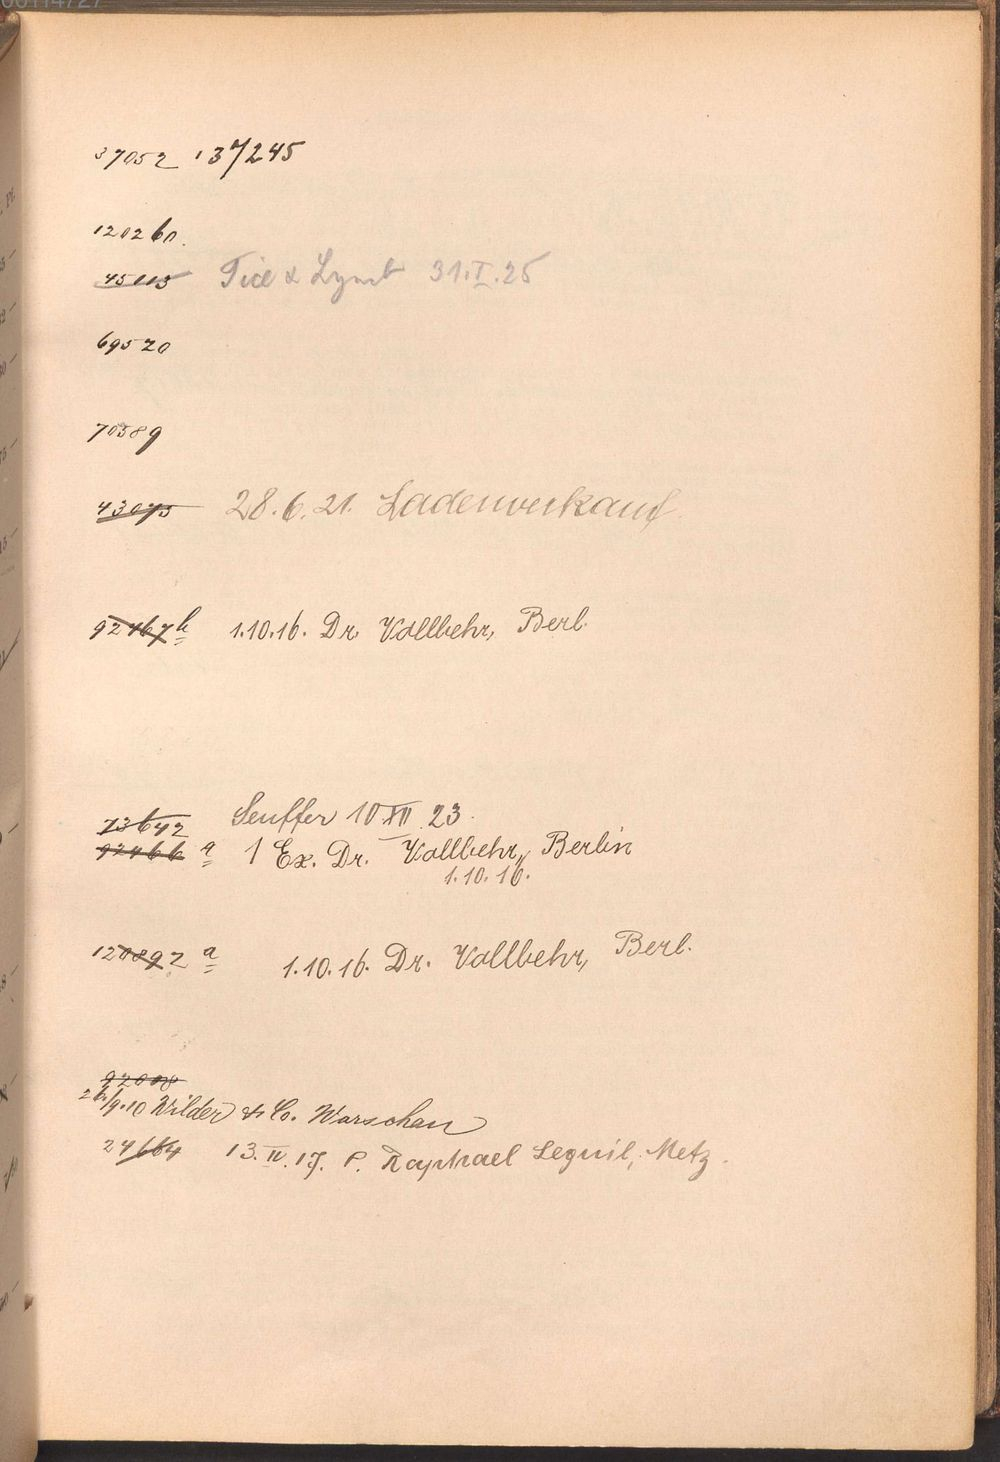 37052 137245
120260.
45113 Tice & Lynch 31.I.25
69520
70589
43075 28.6.21. Ladenverkauf
92467 b 1.10.16. Dr. Vollbehr, Berl.
73642 Seuffer 10 XII 23.
92466 a 1 Ex. Dr. Vollbehr, Berlin
1.10.16.
120892 a 1.10.16. Dr. Vollbehr, Berl.
92008
26/9.10 Wilder & Co. Warschau
24664 13.IV.17. P. Raphael Legnil, Metz.